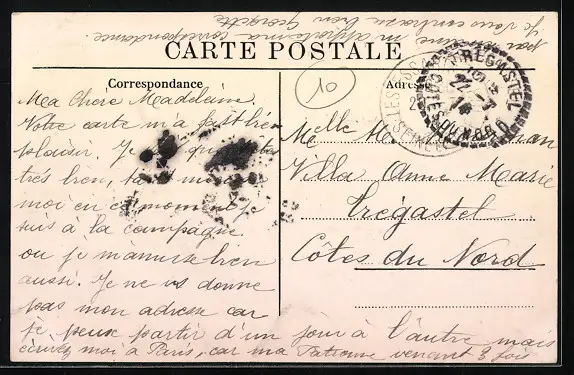 par semaine m'apportera correspondance
Je vous embrasse bien Georgette
CARTE POSTALE
Correspondance
Adresse
TREGASTEL
COTES DU NORD
Ma Chère Madeleine
Votre carte m'a fait bien
plaisir. Je
très bien,
moi en ce moment je
suis à la campagne
ou je m'amuse bien
aussi. Je ne vs donne
pas mon adresse car
je peux partir d'un jour à l'autre mais
écrivez moi à Paris, car ma Patronne venant 3 fois
Melle
Villa Anne Marie
Trégastel
Côtes du Nord